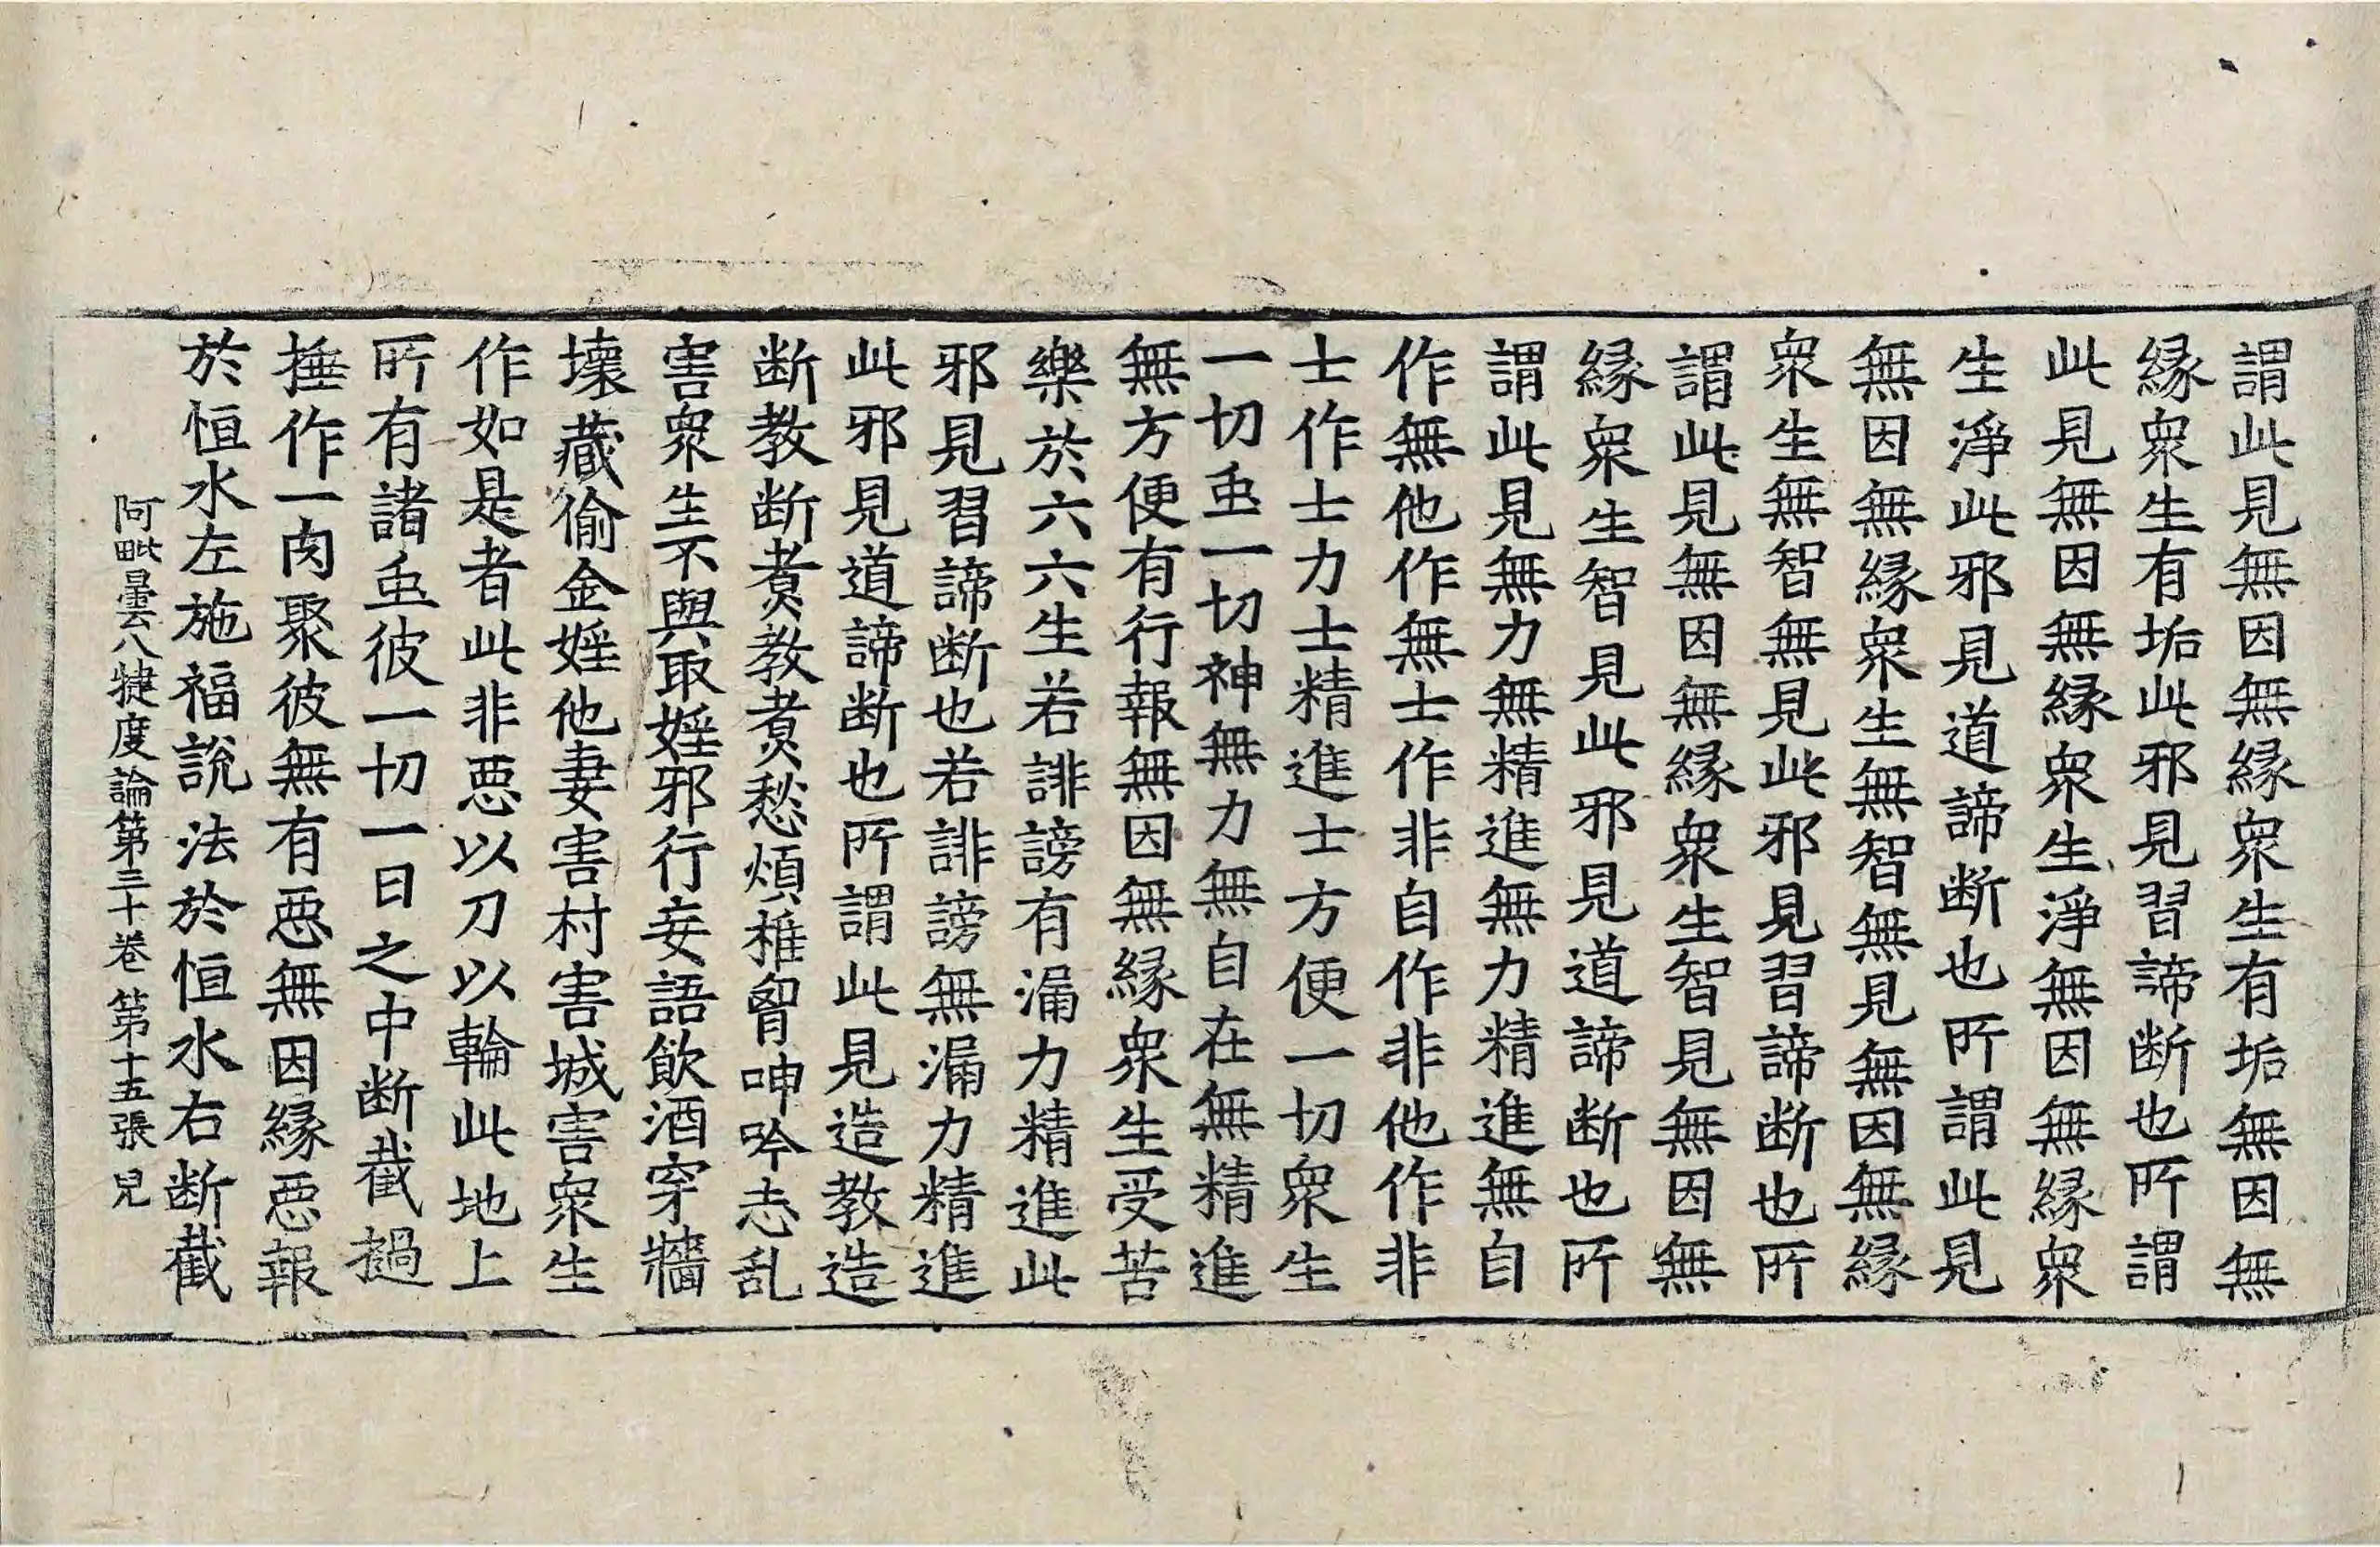 謂此見無因無縁衆生有垢無因無
縁衆生有垢此邪見習諦断也所謂
此見無因無縁衆生淨無因無縁衆
生淨此邪見道諦断也所謂此見
無因無縁衆生無智無見無因無縁
衆生無智無見此邪見習諦断也所
謂此見無因無縁衆生智見無因無
縁衆生智見此邪見道諦断也所
謂此見無力無精進無力精進無自
作無他作無士作非自作非他作非
士作士力士精進士方便一切衆生
一切䖝一切神無力無自在無精進
無方便有行報無因無縁衆生受苦
樂於六六生若誹謗有漏力精進此
邪見習諦断也若誹謗無漏力精進
此邪見道諦断也所謂此見造教造
断教断煑教煑愁煩椎胷呻吟志乱
害衆生不與取婬邪行妄語飲酒穿牆
壞藏偷金婬他妻害村害城害衆生
作如是者此非惡以刀以輪此地上
所有諸䖝彼一切一日之中断截撾
捶作一肉聚彼無有惡無因縁惡報
於恒水左施福說法於恒水右断截
阿毗曇八犍度論第三十卷 第十五張 皃